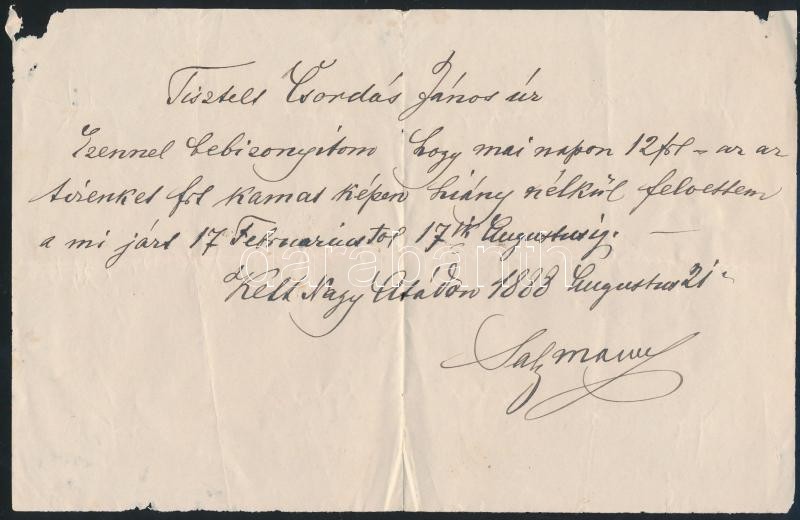 Tisztelt Csordás János úr
Ezennel bebizonyitom hogy mai napon 12 frt = az az
tizenket frt kamat képen hiány nélkül felvettem
a mi járt 17 Februariustol 17ik Augustusig. —
Kelt Nagy Atádon 1883 Augustus 21-
darabanth
Salzmann